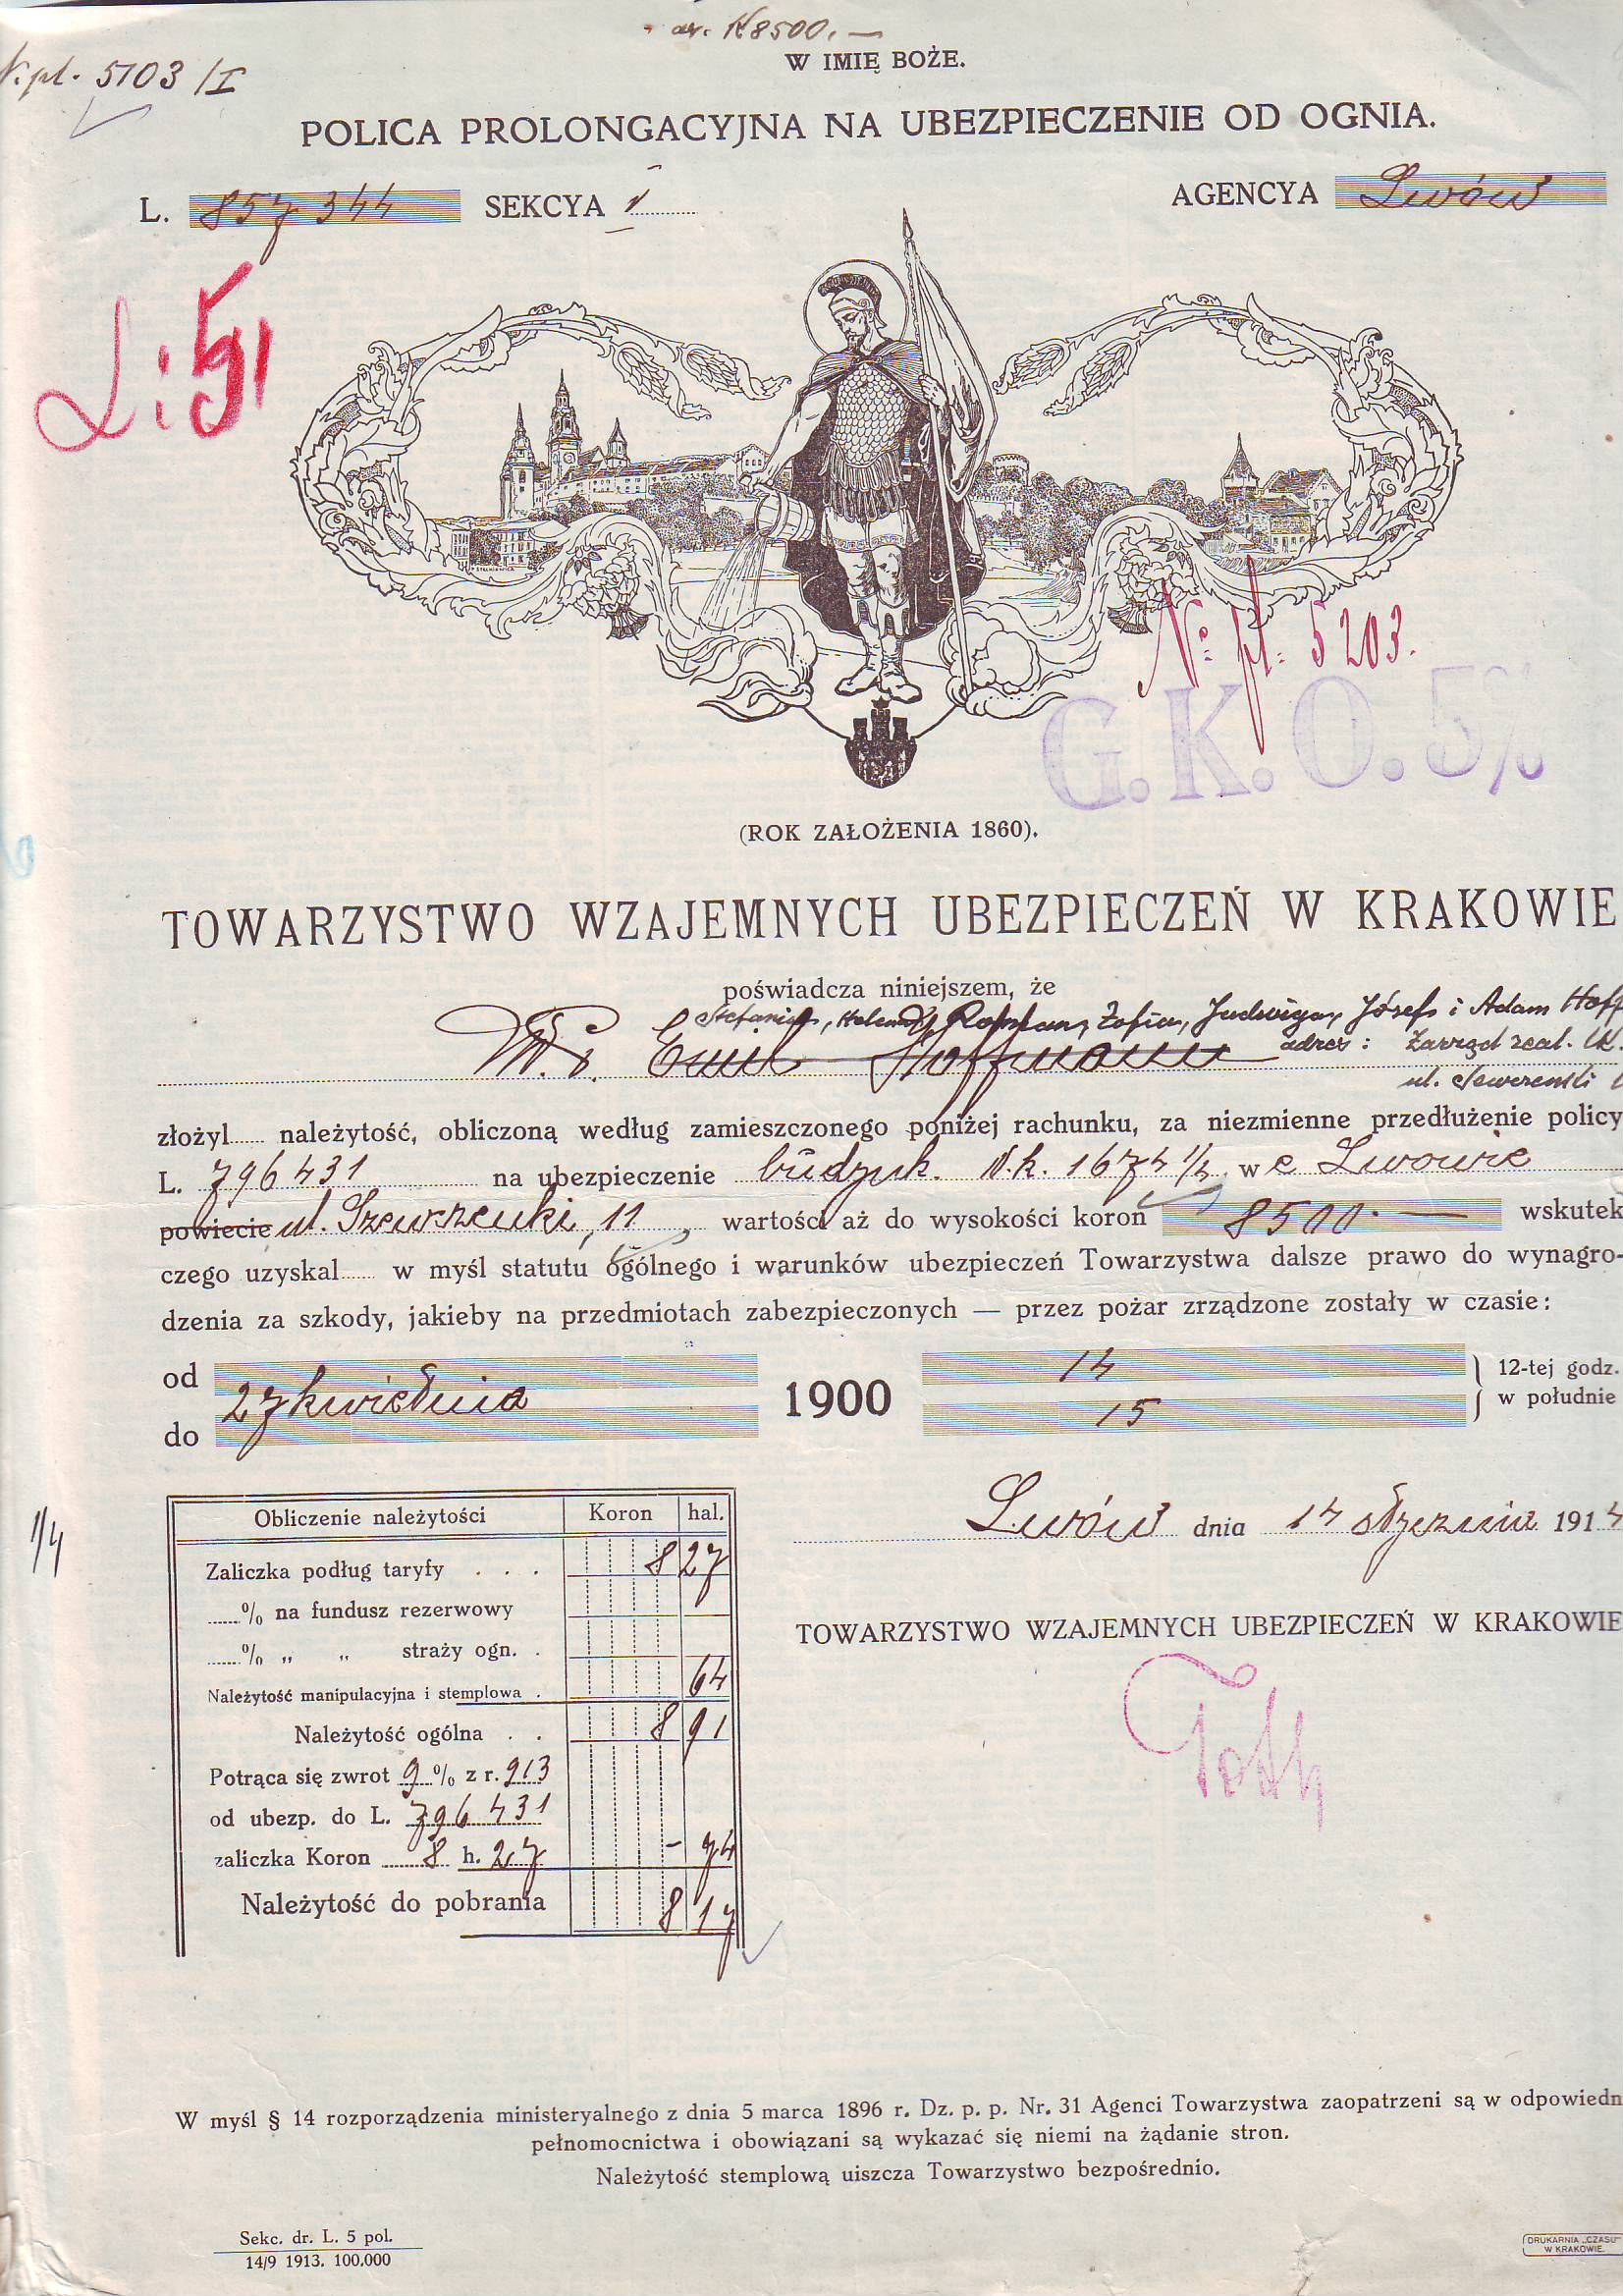 K 8500.—
N. pł. 5103 /I
W IMIĘ BOŻE.
POLICA PROLONGACYJNA NA UBEZPIECZENIE OD OGNIA.
L. 857344 SEKCYA I AGENCYA Lwów
L: 51
No. pł: 5203.
G.K.O. 5%
(ROK ZAŁOŻENIA 1860).
TOWARZYSTWO WZAJEMNYCH UBEZPIECZEŃ W KRAKOWIE
poświadcza niniejszem, że
Stefania, Helena, Roman, Zofia, Jadwiga, Józef i Adam Hoff
W. P. Emil Hoffmann adres: Zarząd real.
ul.
złożył...... należytość, obliczoną według zamieszczonego poniżej rachunku, za niezmienne przedłużenie policy
L. 796431 na ubezpieczenie budynk. N.k. 1674 1/2 we Lwowie
powiecie ul. 11, wartości aż do wysokości koron 8500.— wskutek
czego uzyskal...... w myśl statutu ogólnego i warunków ubezpieczeń Towarzystwa dalsze prawo do wynagro-
dzenia za szkody, jakieby na przedmiotach zabezpieczonych — przez pożar zrządzone zostały w czasie:
od 27 kwietnia 1900 14 12-tej godz.
do 15 w południe
Lwów dnia 14 stycznia 1914
Obliczenie należytości Koron hal.
Zaliczka podług taryfy . . . 8 27
......% na fundusz rezerwowy
......% „ „ straży ogn. .
Należytość manipulacyjna i stemplowa . 64
Należytość ogólna . . 8 91
Potrąca się zwrot 9 % z r. 913
od ubezp. do L. 796431
zaliczka Koron 8 h. 27 - 74
Należytość do pobrania 8 17
1/4
TOWARZYSTWO WZAJEMNYCH UBEZPIECZEŃ W KRAKOWIE
Toth
W myśl § 14 rozporządzenia ministeryalnego z dnia 5 marca 1896 r. Dz. p. p. Nr. 31 Agenci Towarzystwa zaopatrzeni są w odpowiedn
pełnomocnictwa i obowiązani są wykazać się niemi na żądanie stron.
Należytość stemplową uiszcza Towarzystwo bezpośrednio.
Sekc. dr. L. 5 pol.
14/9 1913. 100.000
DRUKARNIA „CZASU"
W KRAKOWIE.